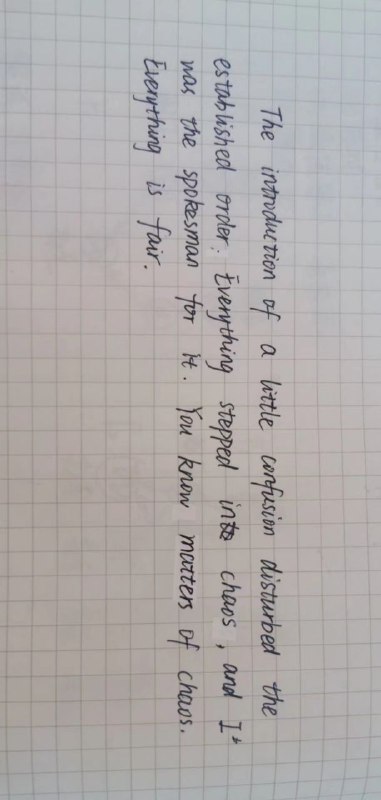 The introduction of a little confusion disturbed the
established order. Everything stepped into chaos, and I
was the spokesman for it. You know matters of chaos.
Everything is fair.